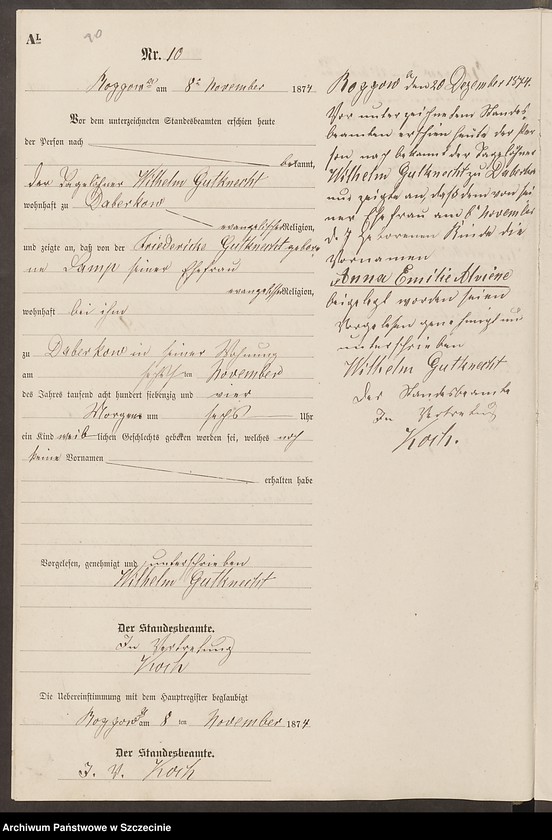 A1.
90
Nr. 10
Roggow A am 8ten November 1874
Vor dem unterzeichneten Standesbeamten erschien heute
der Person nach
bekannt,
der Tagelöhner Wilhelm Gutknecht
wohnhaft zu Daberkow
evangelischer Religion,
und zeigte an, daß von der Friedericke Gutknecht gebor-
ne Lamp seiner Ehefrau
evangelischer Religion,
wohnhaft bei ihm
zu Daberkow in seiner Wohnung
am sechsten November
des Jahres tausend acht hundert siebenzig und vier
Morgens um sechs Uhr
ein Kind weiblichen Geschlechts geboren worden sei, welches noch
keine Vornamen
erhalten habe
Vorgelesen, genehmigt und unterschrieben
Wilhelm Gutknecht
Der Standesbeamte.
In Vertretung
Koch
Die Uebereinstimmung mit dem Hauptregister beglaubigt
Roggow A am 8 ten November 1874
Der Standesbeamte.
I. V. Koch
Roggow A den 20 Dezember 1874.
Vor unterzeichnetem Standes-
beamten erschien heute der Per-
son nach bekannt der Tagelöhner
Wilhelm Gutknecht zu Daberkow
und zeigte an, daß dem von sei-
ner Ehefrau am 6t November
d. J. geborenen Kinde die
Vornamen
Anna Emilie Alviene
beigelegt worden seien
Vorgelesen genehmigt und
unterschrieben
Wilhelm Gutknecht
Der Standesbeamte
In Vertretung
Koch.
Archiwum Państwowe w Szczecinie